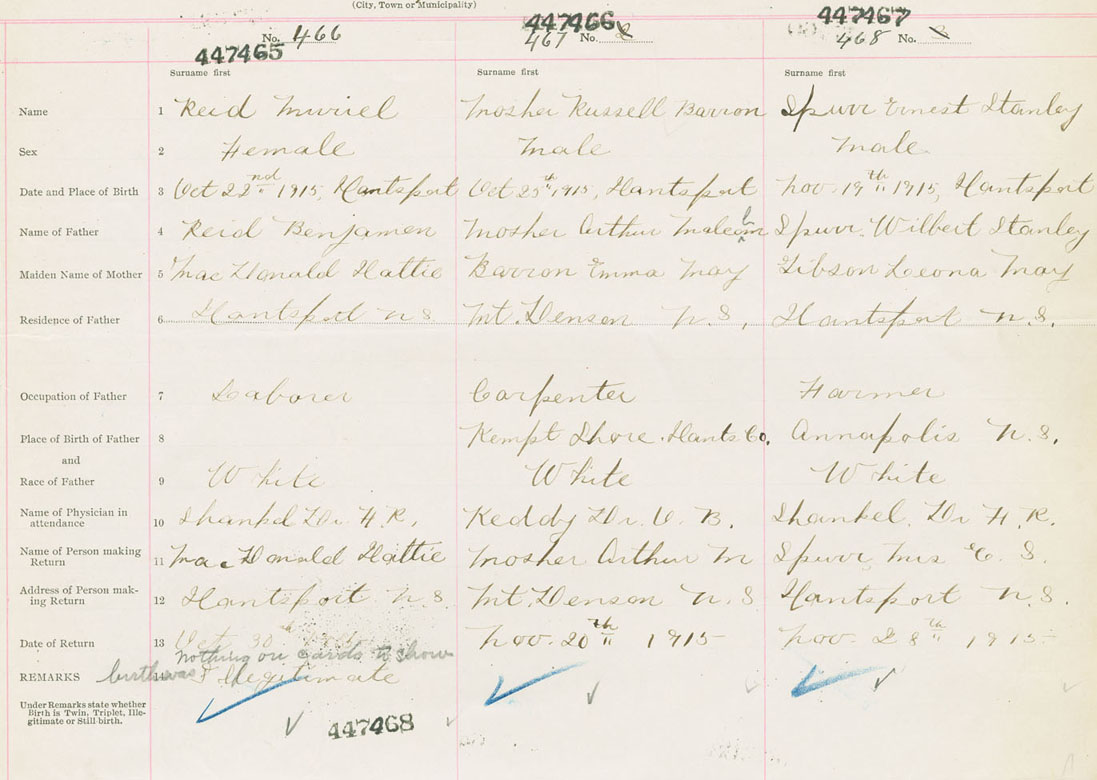 (City, Town or Municipality)
447465 447466 447467
No. 466 467 No. 2 468 No. 3
Surname first Surname first Surname first
Name 1 Reid Muriel Mosher Russell Barron Spurr Ernest Stanley
Sex 2 Female Male Male
Date and Place of Birth 3 Oct 22nd 1915, Hantsport Oct 25th 1915, Hantsport Nov. 19th 1915, Hantsport
Name of Father 4 Reid Benjamen Mosher Arthur Malcolm Spurr. Wilbert Stanley
Maiden Name of Mother 5 Mac Donald Hattie Barron Emma May Gibson Leona May
Residence of Father 6 Hantsport N.S. Mt. Denson N.S. Hantsport N.S.
Occupation of Father 7 Laborer Carpenter Farmer
Place of Birth of Father 8 Kempt Shore. Hants Co. Annapolis N.S.
and
Race of Father 9 White White White
Name of Physician in
attendance 10 Shankel Dr. H.R. Keddy Dr. O.B. Shankel. Dr H.R.
Name of Person making
Return 11 Mac Donald Hattie Mosher Arthur M Spurr, Mrs E. S.
Address of Person mak-
ing Return 12 Hantsport N.S. Mt. Denson N.S Hantsport N.S.
Date of Return 13 Oct. 30th Nov. 20th 1915 Nov. 28th 1915
nothing on cards to show
REMARKS birth was Illegitimate
Under Remarks state whether
Birth is Twin, Triplet, Ille-
gitimate or Still-birth.
447468